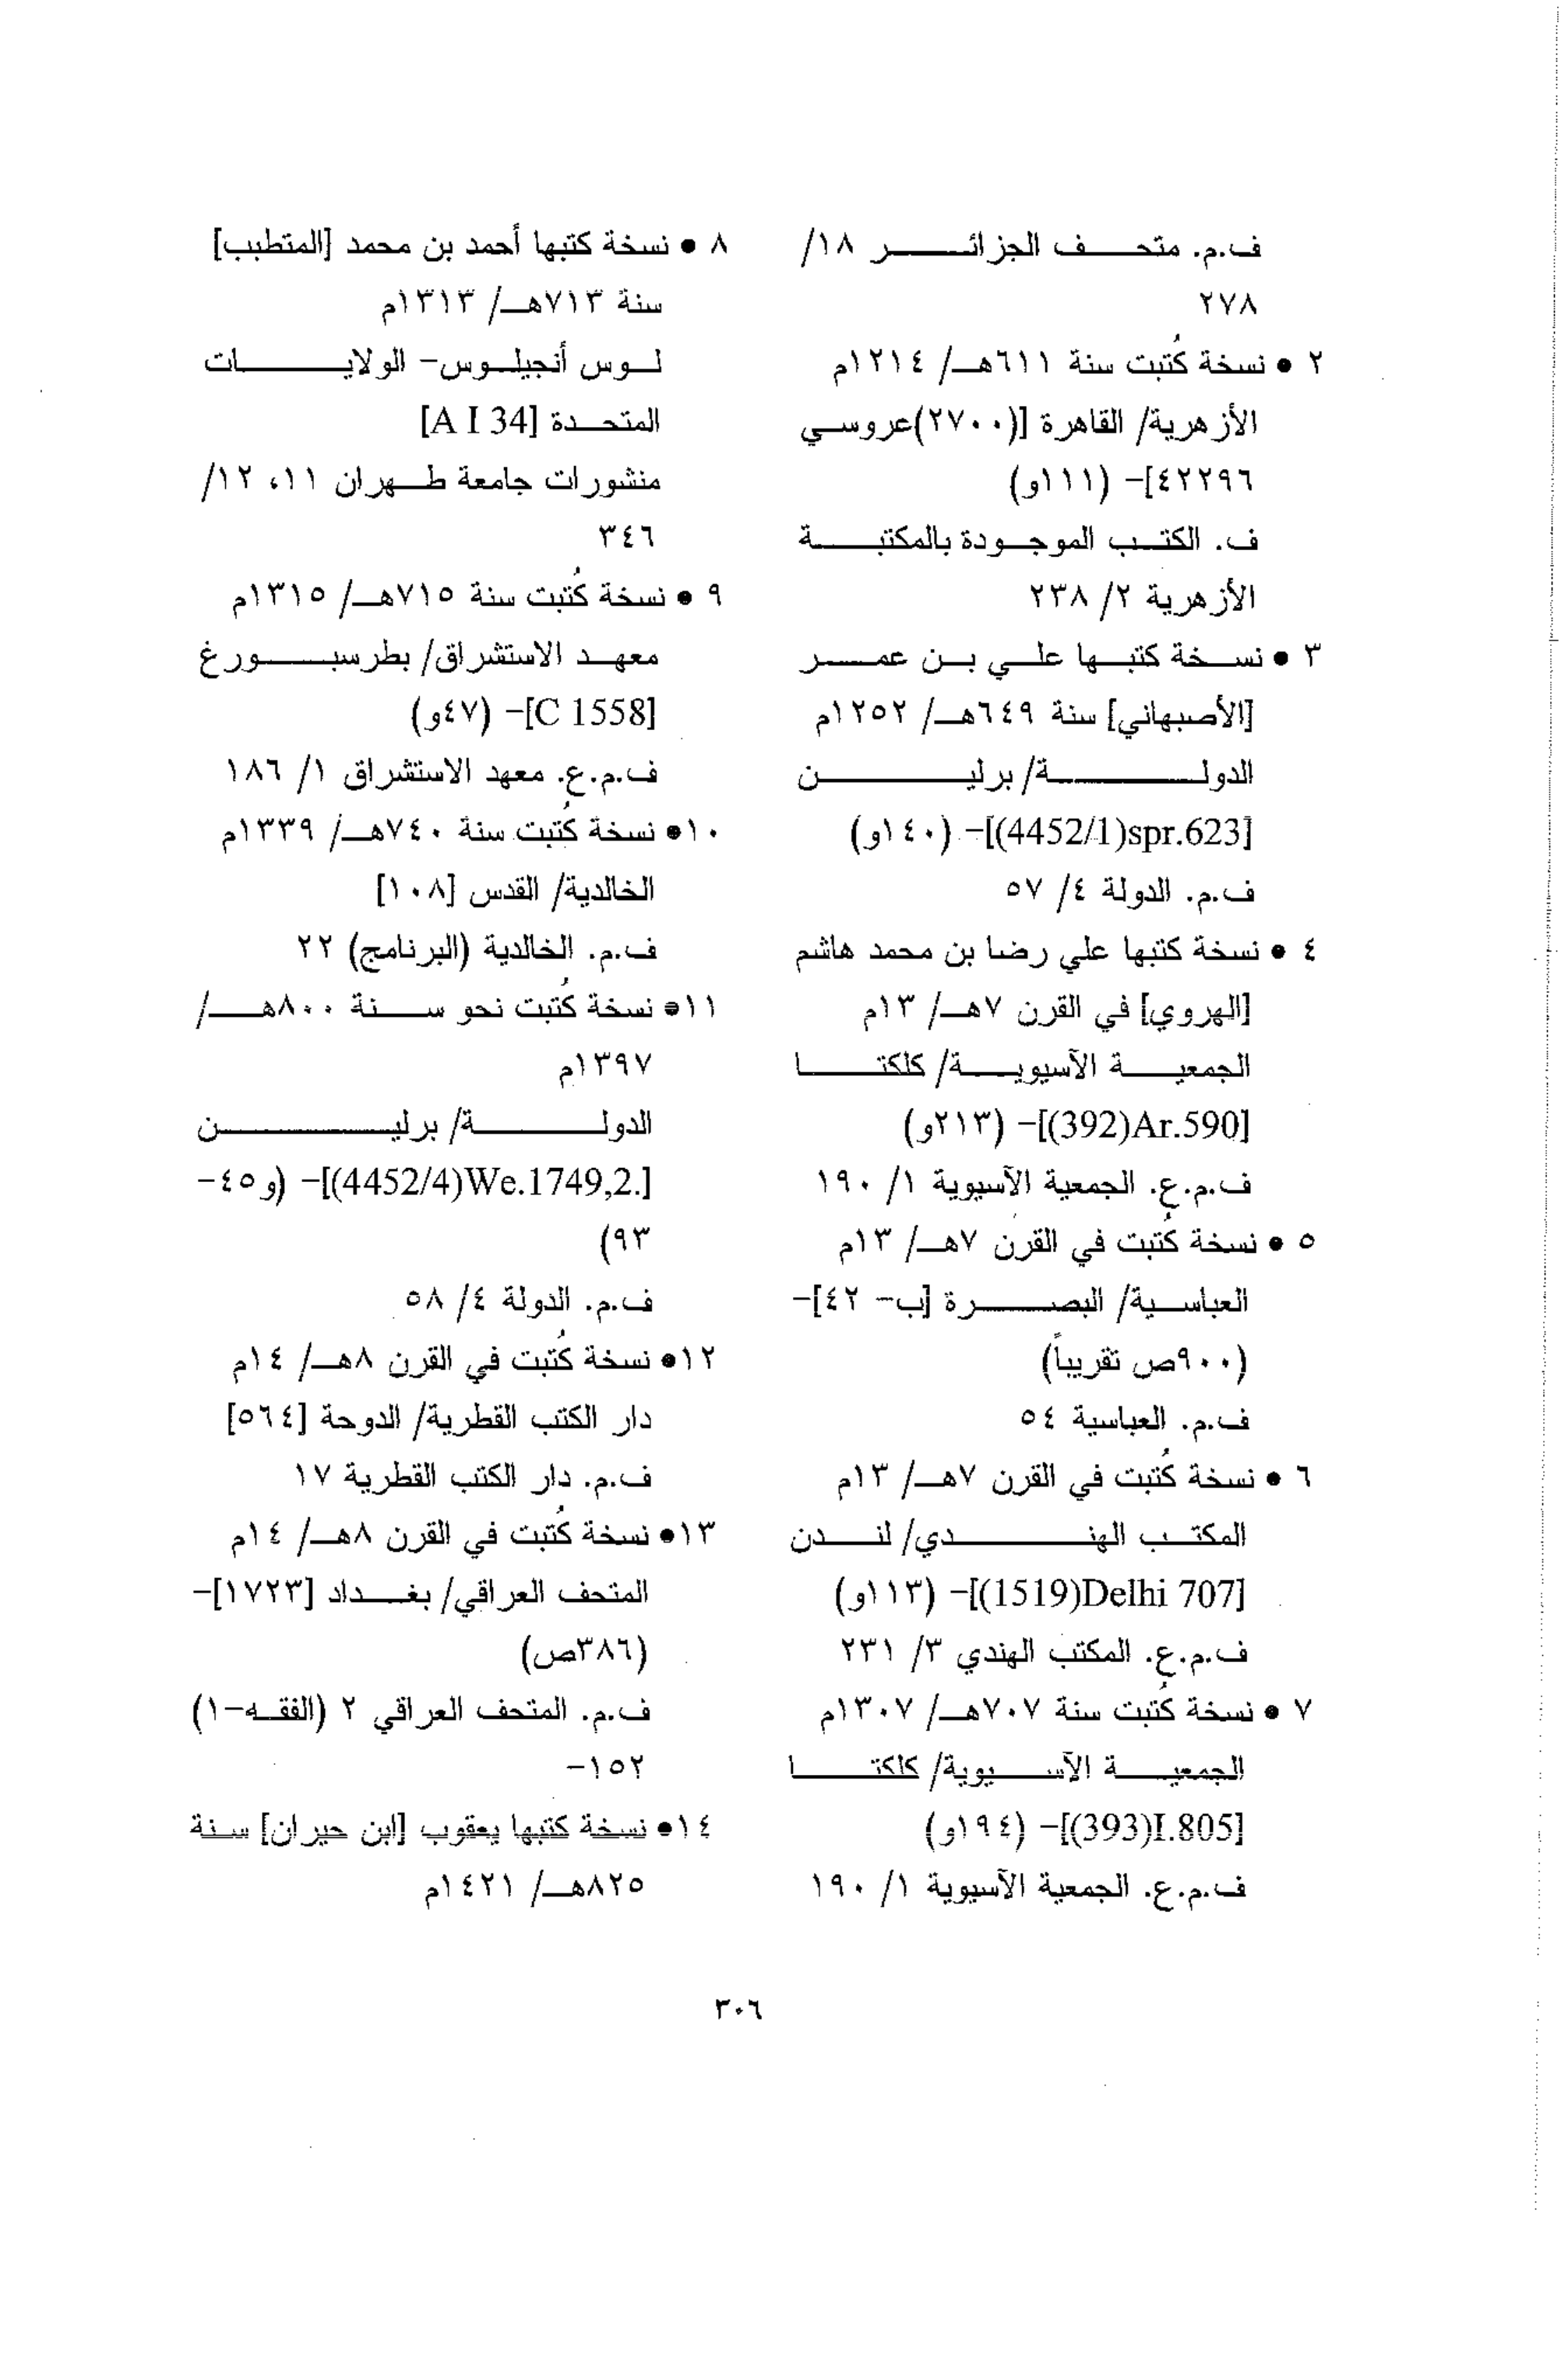 ف.م. متحف الجزائر ١٨/
٢٧٨
٢ • نسخة كُتبت سنة ٦١١هـ/ ١٢١٤م
الأزهرية/ القاهرة [(٢٧٠٠)عروسي
٤٢٢٩٦]- (١١١و)
ف. الكتب الموجودة بالمكتبة
الأزهرية ٢/ ٢٣٨
٣ • نسخة كتبها علي بن عمر
[الأصبهاني] سنة ٦٤٩هـ/ ١٢٥٢م
الدولة/ برلين
[4452/1)spr.623)]- (١٤٠و)
ف.م. الدولة ٤/ ٥٧
٤ • نسخة كتبها علي رضا بن محمد هاشم
[الهروي] في القرن ٧هـ/ ١٣م
الجمعية الآسيوية/ كلكتا
[392)Ar.590)]- (٢١٣و)
ف.م.ع. الجمعية الآسيوية ١/ ١٩٠
٥ • نسخة كُتبت في القرن ٧هـ/ ١٣م
العباسية/ البصرة [ب- ٤٢]-
(٩٠٠ص تقريباً)
ف.م. العباسية ٥٤
٦ • نسخة كُتبت في القرن ٧هـ/ ١٣م
المكتب الهندي/ لندن
[1519)Delhi 707)]- (١١٣و)
ف.م.ع. المكتب الهندي ٣/ ٢٣١
٧ • نسخة كُتبت سنة ٧٠٧هـ/ ١٣٠٧م
الجمعية الآسيوية/ كلكتا
[393)I.805)]- (١٩٤و)
ف.م.ع. الجمعية الآسيوية ١/ ١٩٠
٨ • نسخة كتبها أحمد بن محمد [المتطبب]
سنة ٧١٣هـ/ ١٣١٣م
لوس أنجيلوس- الولايات
المتحدة [A I 34]
منشورات جامعة طهران ١١، ١٢/
٣٤٦
٩ • نسخة كُتبت سنة ٧١٥هـ/ ١٣١٥م
معهد الاستشراق/ بطرسبورغ
[C 1558]- (٤٧و)
ف.م.ع. معهد الاستشراق ١/ ١٨٦
١٠• نسخة كُتبت سنة ٧٤٠هـ/ ١٣٣٩م
الخالدية/ القدس [١٠٨]
ف.م. الخالدية (البرنامج) ٢٢
١١• نسخة كُتبت نحو سنة ٨٠٠هـ/
١٣٩٧م
الدولة/ برلين
[.4452/4)We.1749,2)]- (و٤٥-
٩٣)
ف.م. الدولة ٤/ ٥٨
١٢• نسخة كُتبت في القرن ٨هـ/ ١٤م
دار الكتب القطرية/ الدوحة [٥٦٤]
ف.م. دار الكتب القطرية ١٧
١٣• نسخة كُتبت في القرن ٨هـ/ ١٤م
المتحف العراقي/ بغداد [١٧٢٣]-
(٣٨٦ص)
ف.م. المتحف العراقي ٢ (الفقه-١)
١٥٢-
١٤• نسخة كتبها يعقوب [ابن حيران] سنة
٨٢٥هـ/ ١٤٢١م
٣٠٦